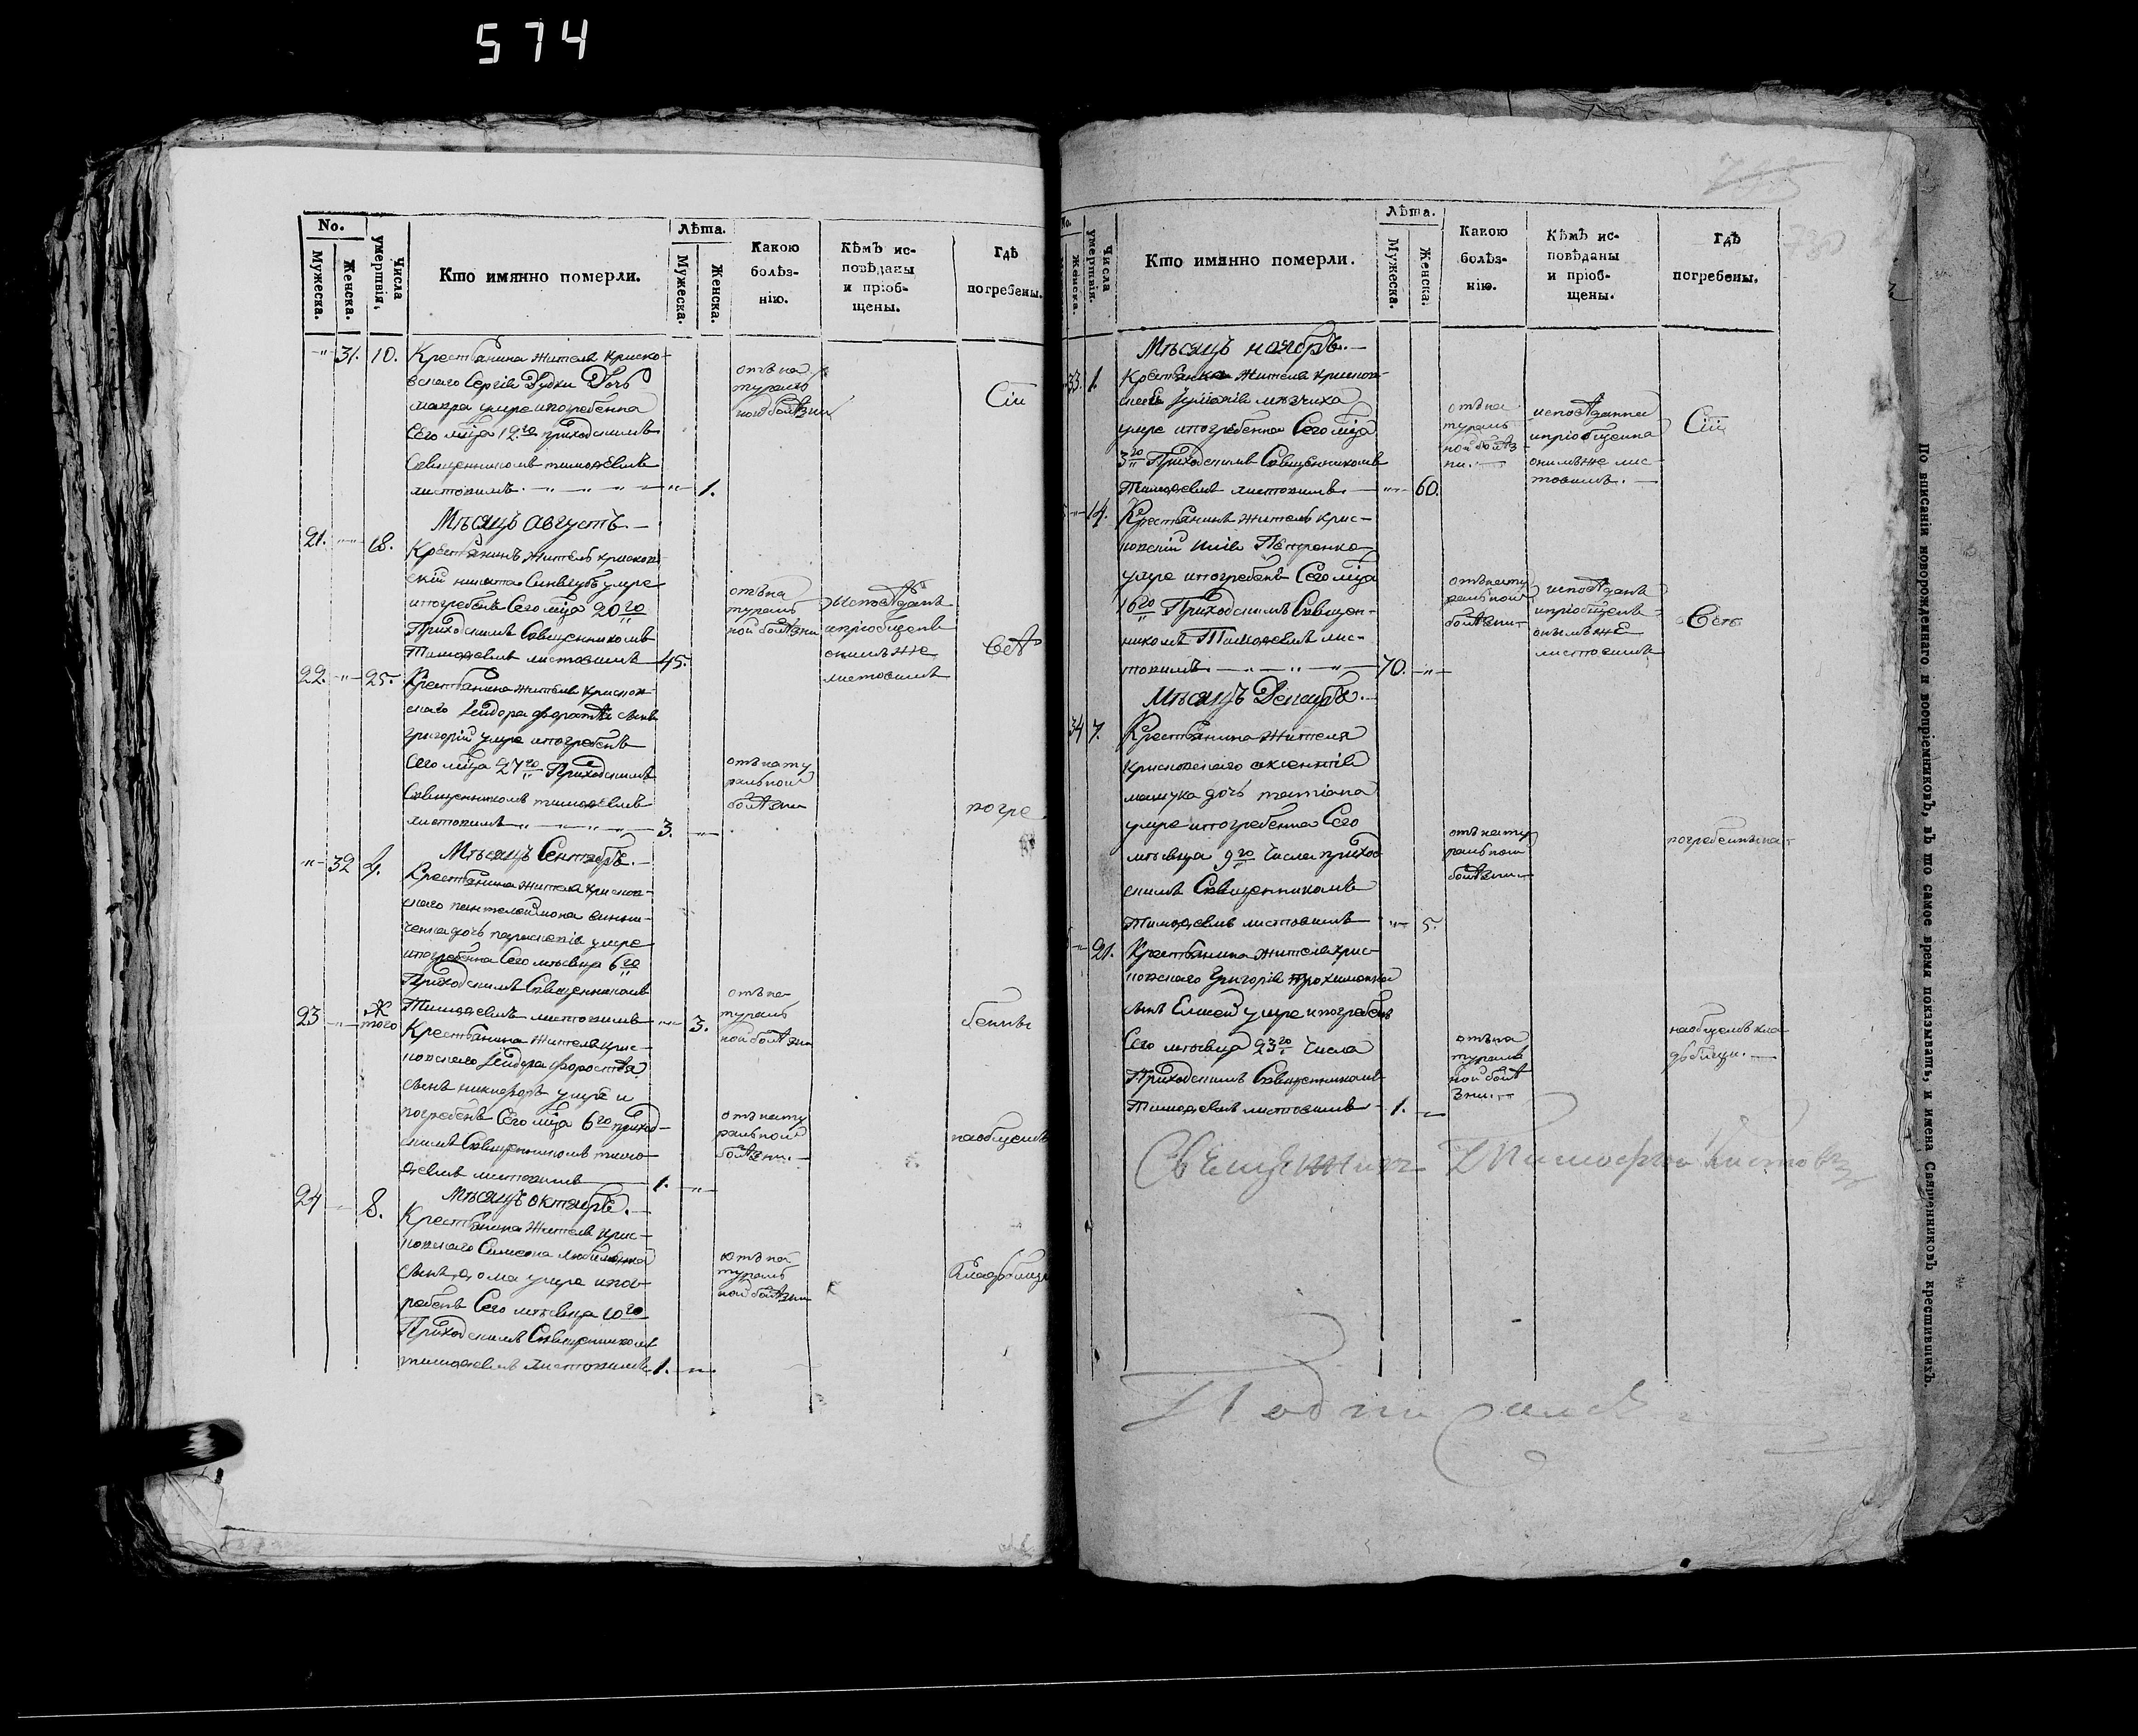 574
No.
Мужеска.
Женска.
Числа умершвія,
Кто имянно померли.
Лѣта.
Мужеска.
Женска.
Какою
болѣз-
нію.
Кѣмъ ис-
повѣданы
и пріоб-
щены.
Гдѣ
погребены.
31. 10. Крестьянина жителя криско-
вскаго Сергія Дудки Дочь
макра умре и погребенна
Сего мца 12го приходскимъ
Священникомъ тимоѳеемъ
листовимъ 1.
отъ на
тураль
ной болѣзни
Сіи
Мѣсяцъ августъ.
21. 18. Крестьянинъ житель крисков
скій никита умре
и погребенъ Сего мца 20го
Приходскимъ Священникомъ
Тимоѳеемъ листовимъ 45.
отъ на
тураль
ной болѣзни
исповѣданъ
и пріобщенъ
онимъ же
листовимъ
всѣ
22. 25. Крестьянина жителя крисков-
скаго сынъ
григорій умре и погребенъ
Сего мца 27го Приходскимъ
Священникомъ тимоѳеемъ
листовимъ 3.
отъ нату
ральной
болѣзни
погре
Мѣсяцъ Сентябрь.
32 4. Крестьянина жителя крисков-
скаго пантелеймона винни-
ченка дочь параскевія умре
и погребенна Сего мѣсяца 6го
Приходскимъ Священникомъ
Тимоѳеемъ листовимъ 3.
отъ на
тураль
ной болѣзни
бенны
23 того Крестьянина жителя крис-
ковскаго
сынъ никифоръ умре и
погребенъ Сего мца 6го приход-
скимъ Священникомъ тимо-
ѳеемъ листовимъ 1.
отъ нату
ральной
болѣзни.
на общемъ
Мѣсяцъ октябрь.
24 8. Крестьянина жителя крис-
ковскаго Симеона
сынъ ѳома умре и пог-
ребенъ Сего мѣсяца 10го
Приходскимъ Священникомъ
тимоѳеемъ листовимъ 1.
отъ на
тураль
ной болѣзни
кладбищи
No.
Женска.
Числа умершвія.
Кто имянно померли.
Лѣта.
Мужеска.
Женска.
Какою
болѣз-
нію.
Кѣмъ ис-
повѣданы
и пріоб-
щены.
Гдѣ
погребены.
Мѣсяцъ ноябрь.
33. 1. Крестьянка жителя крисков-
умре и погребенна Сего мца
3го Приходскимъ Священникомъ
Тимоѳеемъ листовимъ 60.
отъ на
тураль
ной болѣз
ни.
исповѣданна
и пріобщенна
онимъ же лис
товимъ.
Сіи
14. Крестьянинъ житель крис-
ковскій Петренко
умре и погребенъ Сего мца
16го Приходскимъ Священ-
никомъ Тимоѳеемъ лис-
товимъ. 70.
отъ нату
ральной
болѣзни
исповѣданъ
и пріобщенъ
онымъ же
листовимъ
Мѣсяцъ Декабрь.
34 7. Крестьянина жителя
крисковскаго авксентія
дочь татіана
умре и погребенна Сего
мѣсяца 9го числа приход
скимъ Священникомъ
Тимоѳеемъ листовимъ 5.
отъ нату
ральной
болѣзни
погребенны
21. Крестьянина жителя крис-
ковскаго Григорія
сынъ Елисей умре и погребенъ
Сего мѣсяца 23го числа
Приходскимъ Священникомъ
Тимоѳеемъ листовимъ 1.
отъ на
тураль
ной болѣ
зни.
на общемъ кла
дбищи.
Священникъ Тимофей Листовъ
Подписался
По вписаніи новорожденнаго и воспріемниковъ, въ то самое время показывать, и имена Священниковъ крестившихъ.